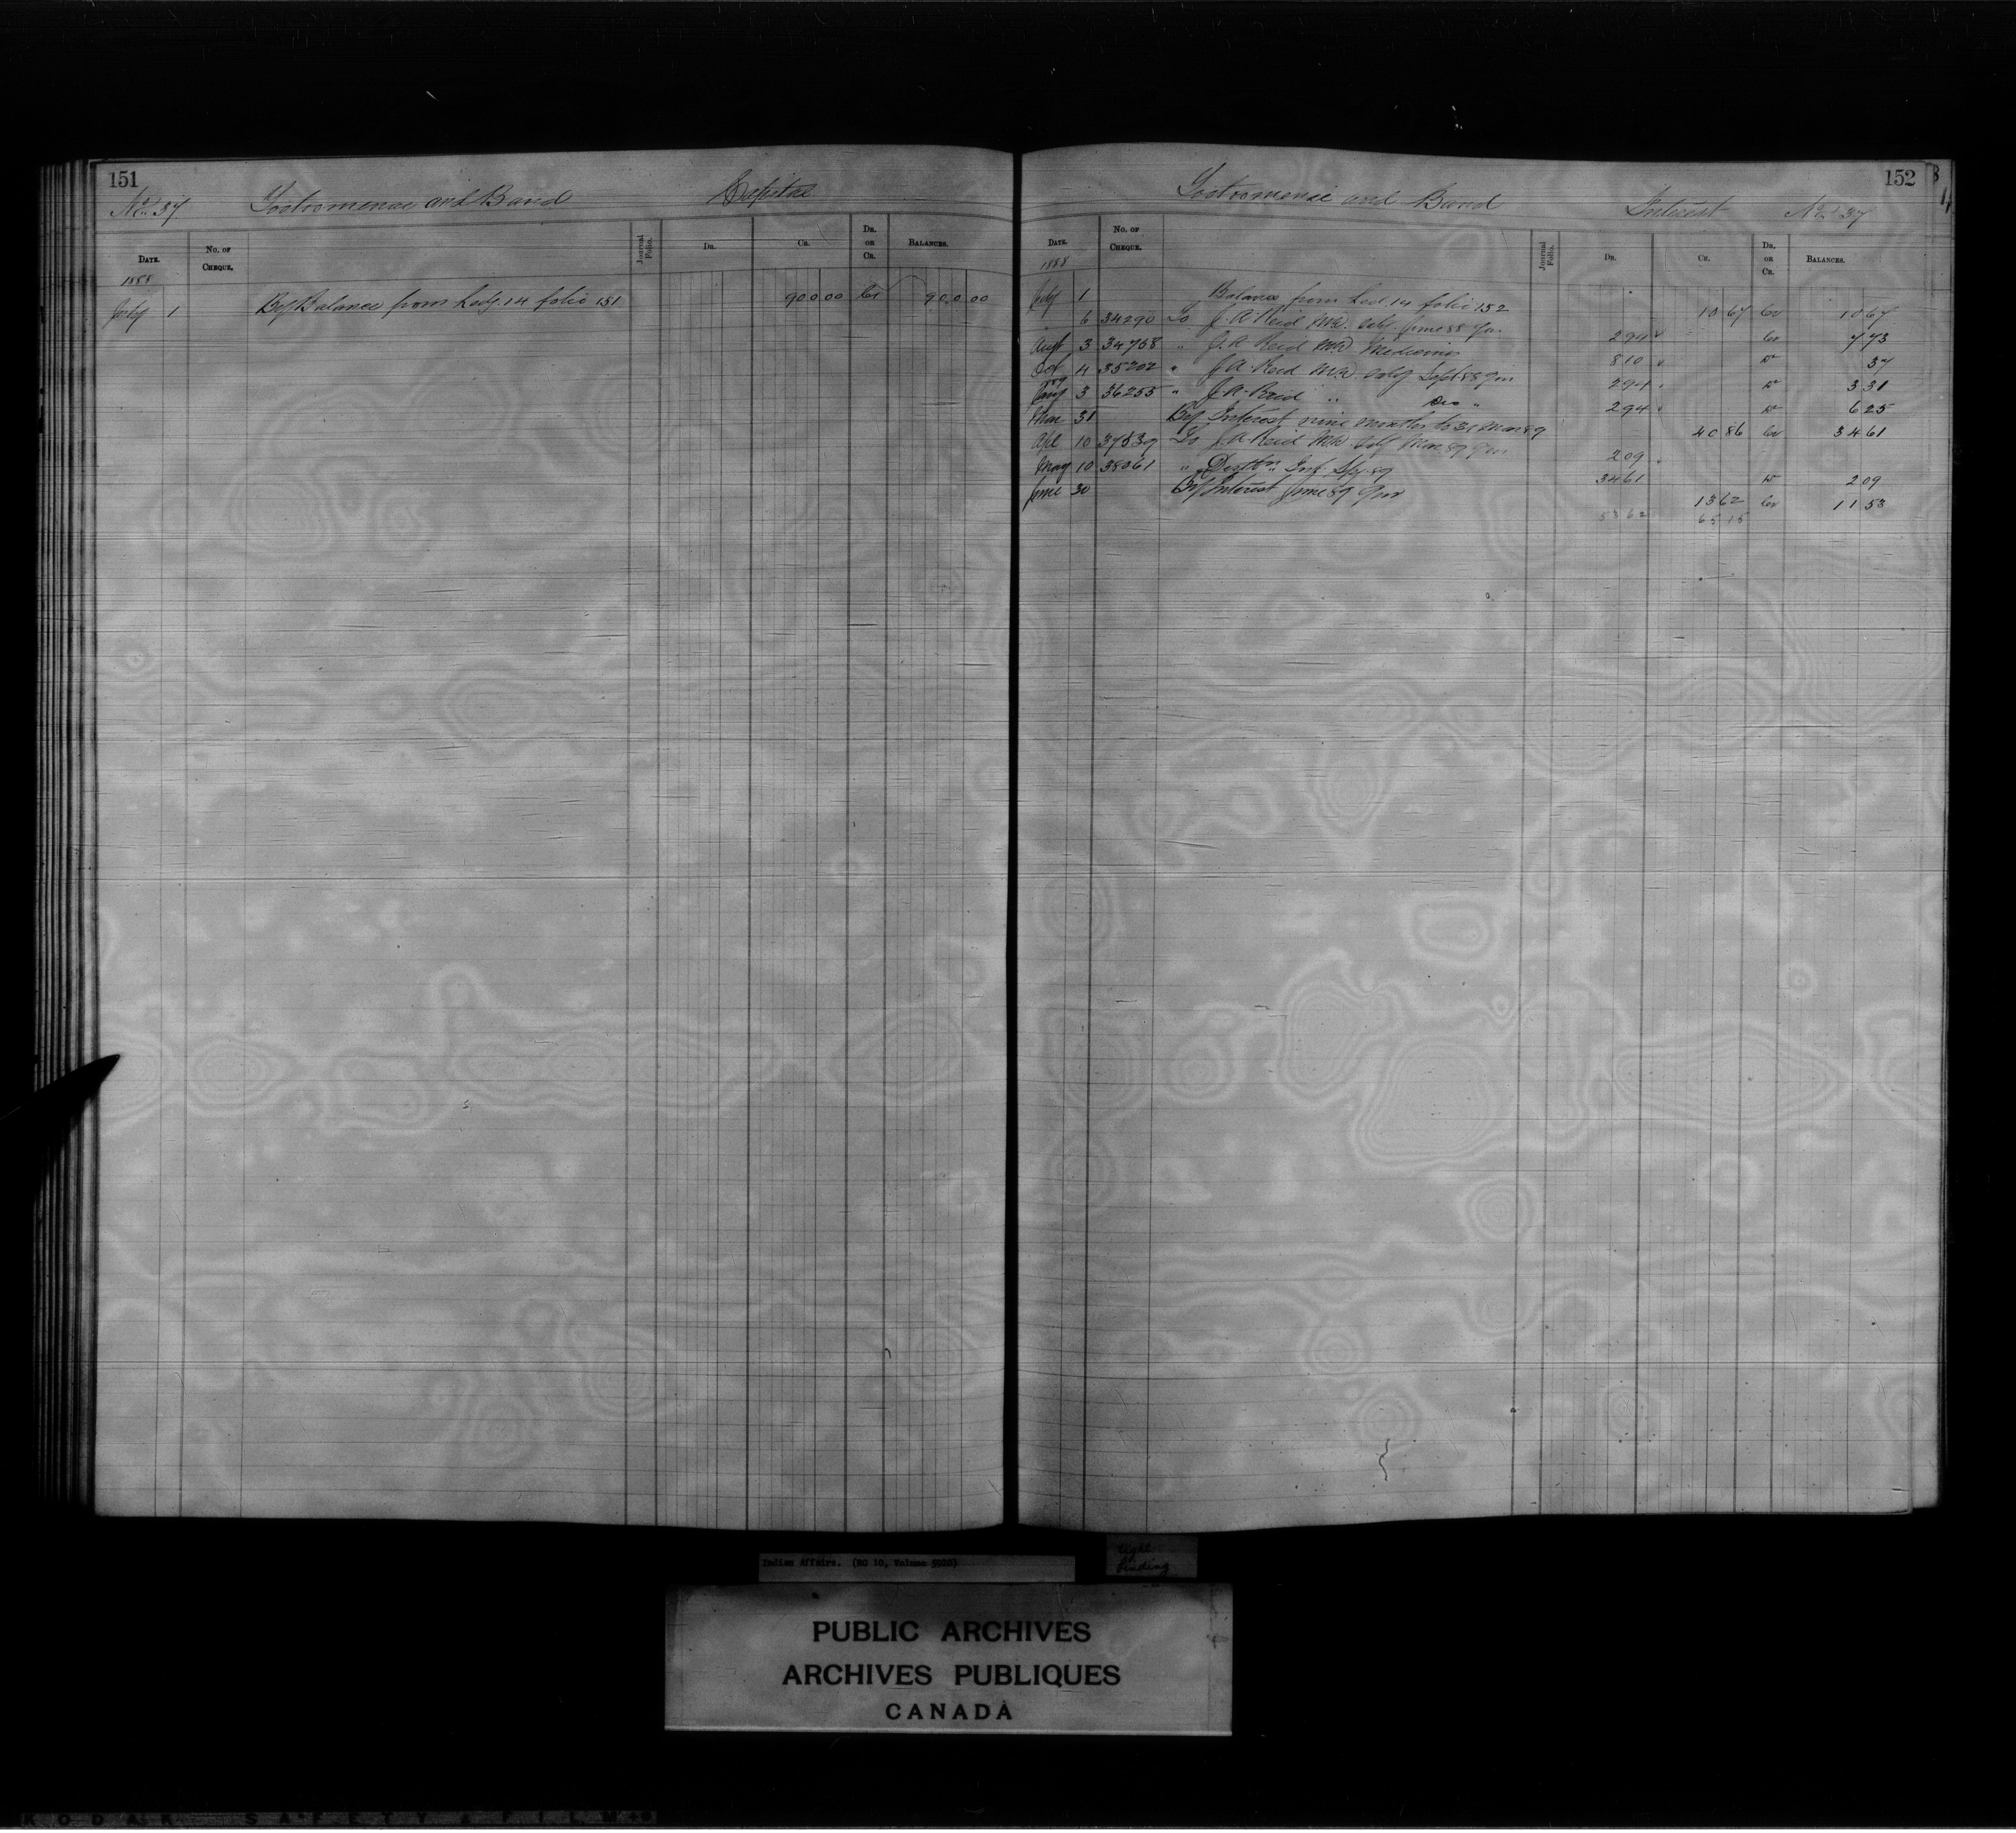 151
No. 37 Tootoomenai and Band Capital
DATE. No. OF CHEQUE. Journal Folio. DR. CR. DR. or CR. BALANCES.
1888
July 1 By Balance from Ledg. 14 folio 151 900 00 Cr 900 00
152
Tootoomenai and Band Interest No. 37
DATE. No. OF CHEQUE. Journal Folio. DR. CR. DR. or CR. BALANCES.
1888
July 1 Balance from Led 14 folio 152 10 67 Cr 10 67
" 6 34290 To J. A. Reid M.D. Saly. June 88 Qr. 2 94 Cr 7 73
Augt 3 34758 " J. A. Reid M.D. Medicines 8 10 Dr 37
Oct 4 35202 " J. A. Reid M.D. Saly Sept 88 Qr 2 94 Dr 3 31
89
Jany 3 36255 " J. A. Reid " Dec " 2 94 Dr 6 25
Mar 31 By Interest nine months to 31 Mar 89 40 86 Cr 34 61
Apl 10 37539 To J. A. Reid M.D. Saly Mar 89 Qr 2 09
May 10 38061 " Distbn. Int. Spg. 89 34 61 Dr 2 09
June 30 By Interest June 89 Qr 13 62 Cr 11 53
53 62 65 15
Indian Affairs. (RG 10, Volume 5920)
tight
binding
PUBLIC ARCHIVES
ARCHIVES PUBLIQUES
CANADA
KODAK SAFETY FILM